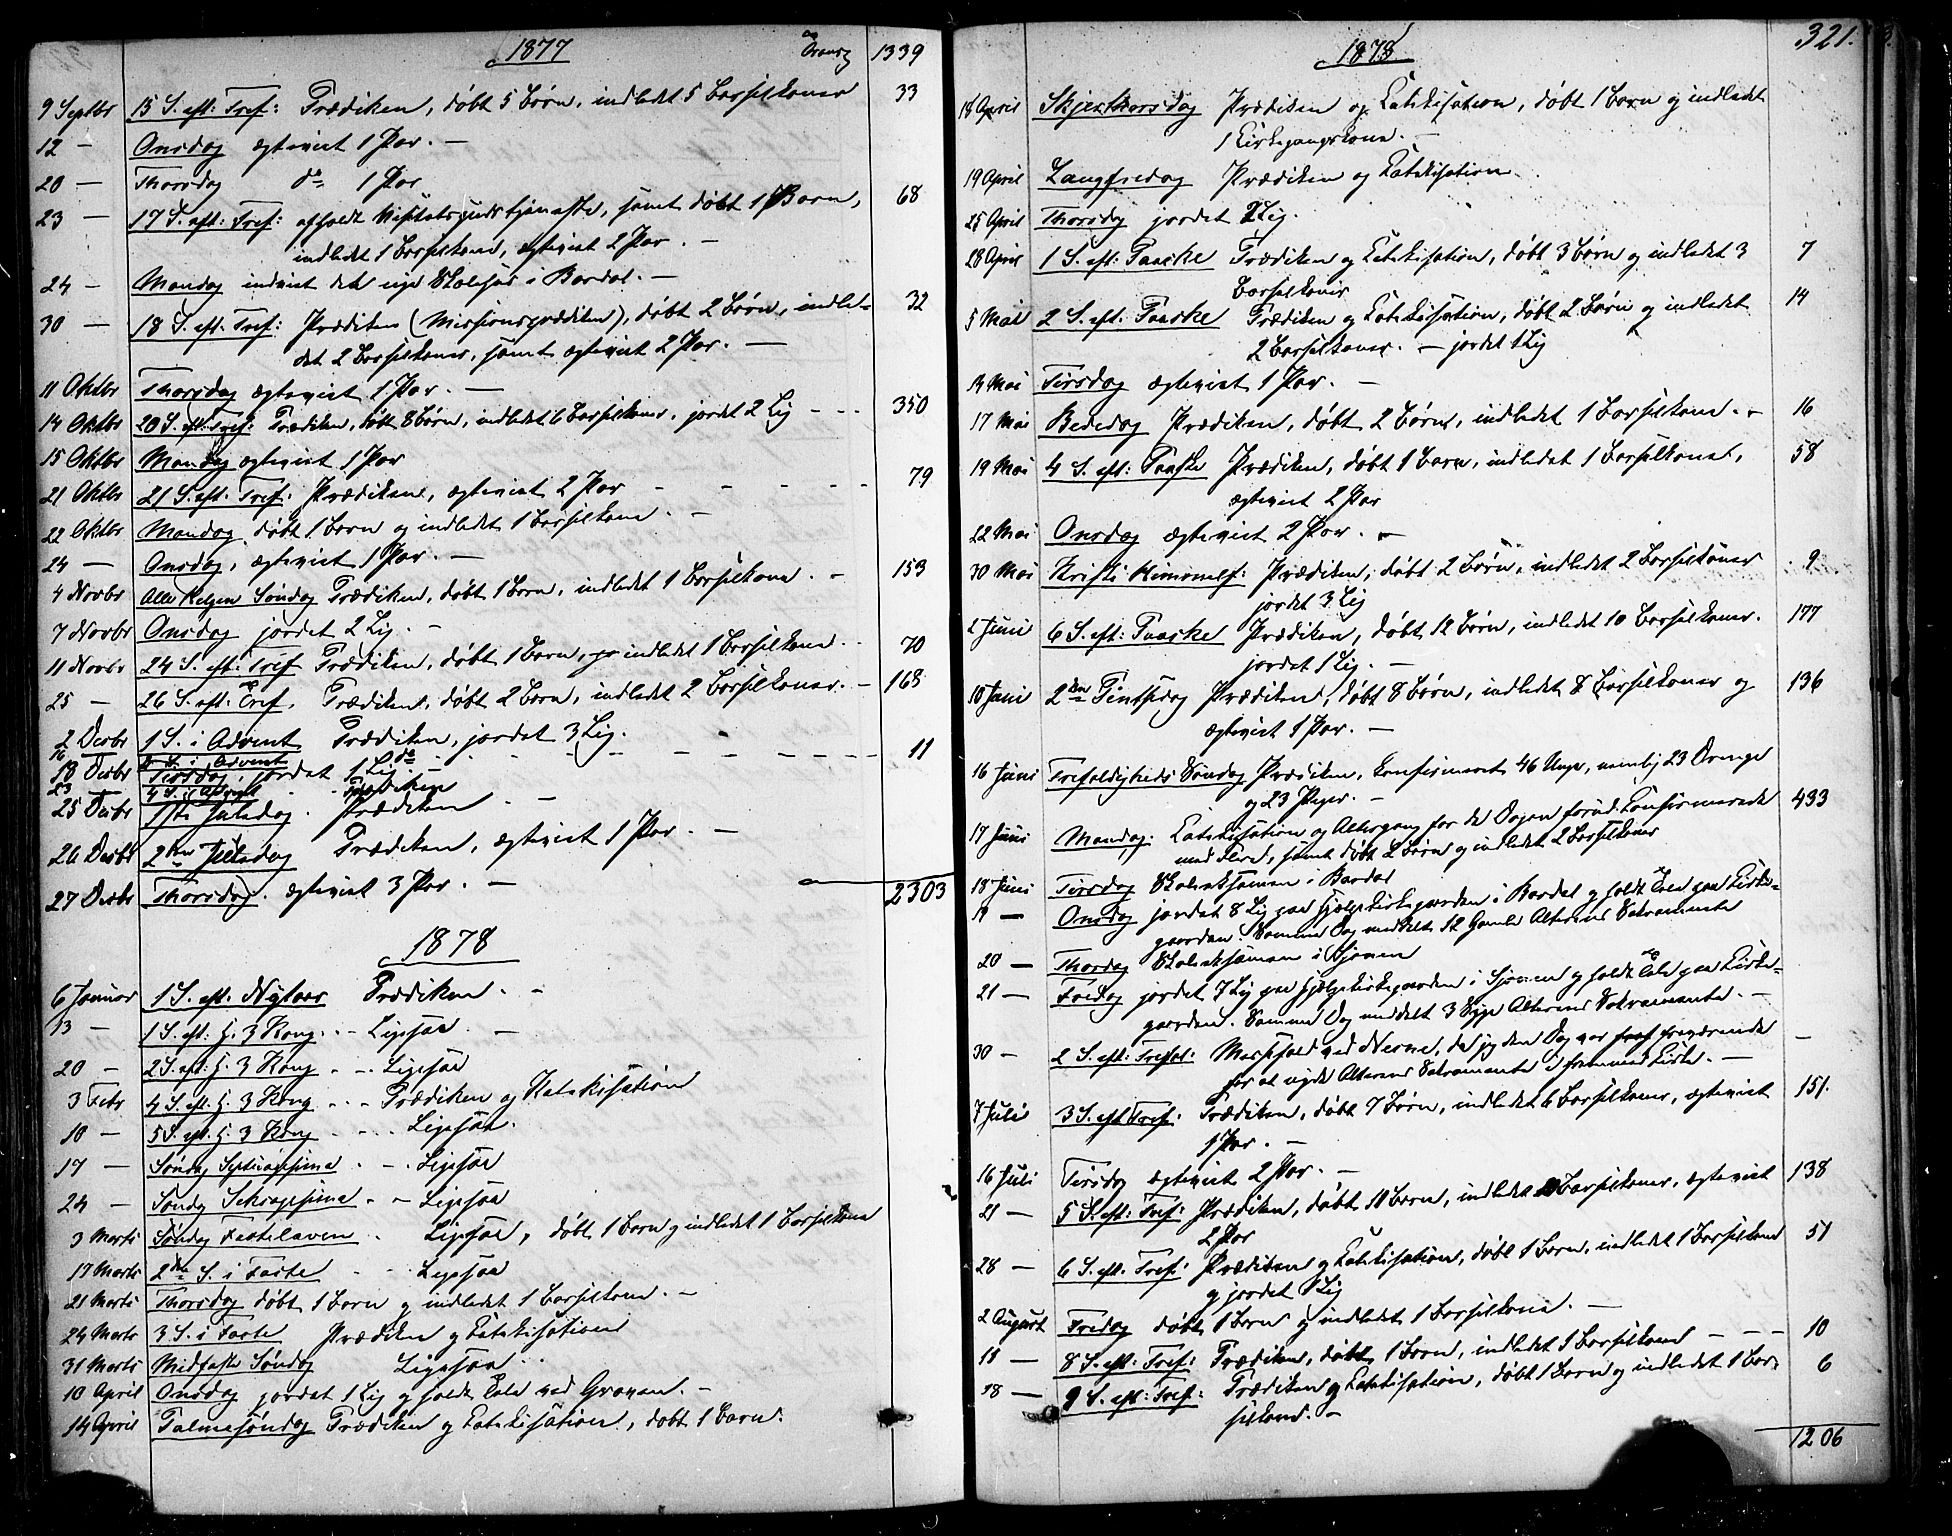 1877 Transp 1339
9 Septbr 15 S. eft: Tref: Prædiken, døbt 5 Børn, indledet 5 Barselkoner 33
12 — Onsdag ægteviet 1 Par. —
20 — Thorsdag do 1 Par
23 — 17 S. eft: Tref: afholdt Visitatsgudstjeneste, samt døbt 1 Barn, 68
indledet 1 Barselkone, ægteviet 2 Par. —
24 — Mandag indviet det nye Skolehus i Bardal. —
30 — 18 S. eft: Tref: Prædiken (Missionsprædiken), døbt 2 Børn, indle- 32
det 2 Barselkoner, samt ægteviet 2 Par. —
11 Oktbr Thorsdag ægteviet 1 Par. —
14 Oktbr 20 S. eft: Tref: Prædiken, døbt 8 Børn, indledet 6 Barselkoner, jordet 2 Lig - - - 350
15 Oktbr Mandag ægteviet 1 Par
21 Oktbr 21 S. eft: Tref: Prædiken, ægteviet 2 Par - - - - - 79
22 Oktbr Mandag døbt 1 Barn og indledet 1 Barselkone. —
24 — Onsdag, ægteviet 1 Par. —
4 Novbr Alle Helgen Søndag Prædiken, døbt 1 Barn, indledet 1 Barselkone. — 153
7 Novbr Onsdag jordet 2 Lig. —
11 Novbr 24 S. eft: Tref Prædiken, døbt 1 Barn, indledet 1 Barselkone. 70
25 — 26 S. eft: Tref. Prædiken, døbt 2 Børn, indledet 2 Barselkoner. — 168
2 Decbr 1 S. i Advent Prædiken, jordet 3 Lig.
16 3 S. i Advent do - - - - - 11
18 Decbr Tirsdag, jordet 1 Lig. —
23 4 S. i Advent Prædiken
25 Decbr 1ste Juledag. Prædiken —
26 Decbr 2den Juledag Prædiken, ægteviet 1 Par. —
27 Decbr Thorsdag. ægteviet 3 Par. — 2303
1878
6 Januar 1 S. eft. Nytaar Prædiken. —
13 — 1 S. eft: H. 3 Kong. - - Ligesaa. —
20 — 2 S. eft: H. 3 Kong - - Ligesaa
3 Febr 4 S. eft. H. 3 Kong - - - Prædiken og Katekisation
10 — 5 S. eft. H. 3 Kong - - - Ligesaa.
17 — Søndag Septuagesima - - Ligesaa
24 — Søndag Seksagesima - - Ligesaa
3 Marts Søndag Fastelaven - Ligesaa, døbt 1 Barn og indledet 1 Barselkone
17 Marts 2den S. i Faste - - Ligesaa
21 Marts Thorsdag døbt 1 Barn og indledet 1 Barselkone. —
24 Marts 3 S. i Faste Prædiken og Katekisation
31 Marts Midfaste Søndag Ligesaa
10 April Onsdag jordet 1 Lig og holdt Tale ved Graven. —
14 April Palmesøndag Prædiken og Katekisation, døbt 1 Barn.
1878 321.
18 April Skjærthorsdag Prædiken og Katekisation, døbt 1 Barn og indledet
1 Kirkegangskone. —
19 April Langfredag Prædiken og Katekisation
25 April Thorsdag jordet 2 Lig.
28 April 1 S. eft: Paaske Prædiken og Katekisation, døbt 3 Børn og indledet 3 7
Barselkoner
5 Mai 2 S. eft. Paaske Prædiken og Katekisation, døbt 2 Børn og indledet 14
2 Barselkoner. — jordet 1 Lig
14 Mai Tirsdag ægteviet 1 Par. —
17 Mai Bededag Prædiken, døbt 2 Børn, indledet 1 Barselkone. — 16
19 Mai 4 S. eft: Paaske Prædiken, døbt 1 Barn, indledet 1 Barselkone, 58
ægteviet 2 Par
22 Mai Onsdag ægteviet 2 Par. —
30 Mai Kristi Himmelf: Prædiken, døbt 2 Børn, indledet 2 Barselkoner 9
jordet 3 Lig
2 Juni 6 S. eft: Paaske Prædiken, døbt 12 Børn, indledet 10 Barselkoner. 177
jordet 1 Lig. —
10 Juni 2den Pintsedag Prædiken, døbt 8 Børn, indledet 8 Barselkoner og 136
ægteviet 1 Par. —
16 Juni Trefoldigheds Søndag Prædiken, konfirmeret 46 Unge, nemlig 23 Drenge
og 23 Piger. —
17 Juni Mandag. Katekisation og Altergang for de Dagen forud Konfirmerede 433
med Flere, samt døbt 2 Børn og indledet 2 Barselkoner
18 Juni Tirsdag Skoleeksamen i Bardal
19 — Onsdag jordet 8 Lig paa Hjælpekirkegaarden i Bardal og holdt Tale paa Kirke-
gaarden. Samme Dag meddelt 12 Gamle Alterens Sakramente
20 — Thorsdag Skoleeksamen i Sjonen
21 — Fredag jordet 7 Lig paa Hjælpekirkegaarden i Sjonen og holdt Tale paa Kirke-
gaarden. Samme Dag meddelt 3 Syge Alterens Sakramente. —
30 — 2 S. eft: Trefol: Messefald ved Nesne, da jeg den Dag var fraværende —
for at nyde Alterens Sakramente i fremmed Kirke. —
7 Juli 3 S. eft Tref: Prædiken, døbt 7 Børn, indledet 6 Barselkoner, ægteviet 151.
1 Par. —
16 Juli Tirsdag ægteviet 2 Par. —
21 — 5 S. eft: Tref: Prædiken, døbt 11 Børn, indledet Barselkoner, ægteviet 138
2 Par
28 — 6 S. eft. Tref: Prædiken og Katekisation, døbt 1 Barn, indledet 1 Barselkone 51
og jordet 1 Lig
2 August Fredag døbt 1 Barn og indledet 1 Barselkone. —
11 — 8 S. eft: Tref: Prædiken, døbt 1 Barn, indledet 1 Barselkone - - - 10
18 — 9 S. eft: Tref: Prædiken og Katekisation, døbt 1 Barn og indledet 1 Bar- 6
selkone. —
1206